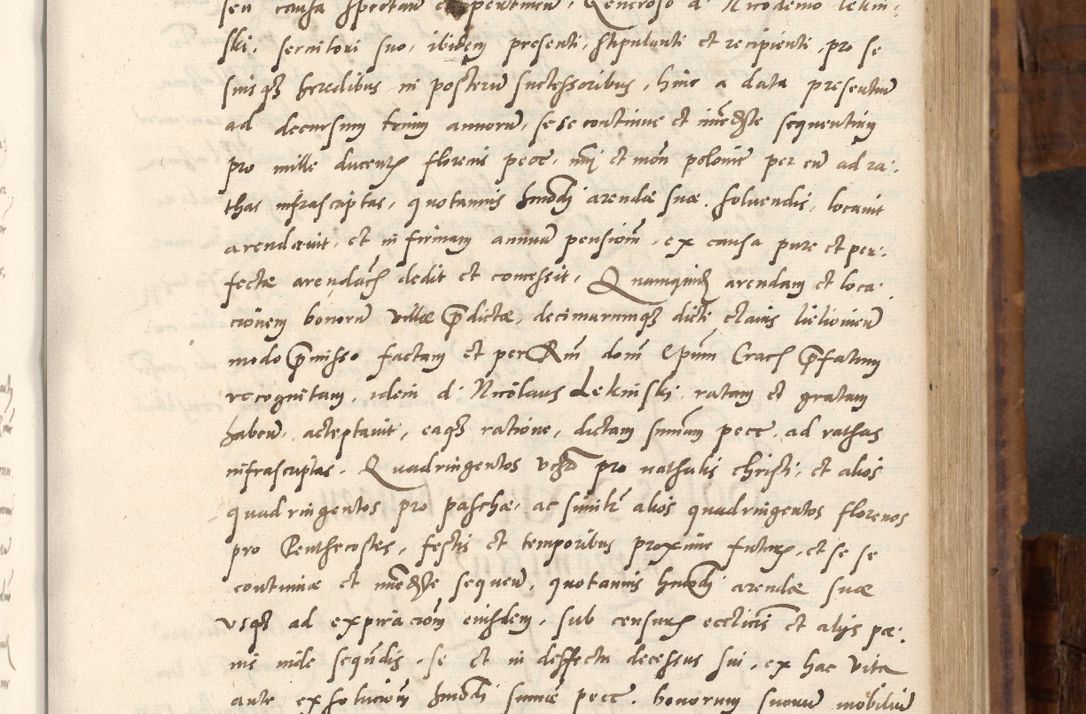 seu causa spectan et pertinen. Generoso d. Nicodemo Lekin:
ski. servitori suo, ibidem presenti, stipulanti et recipienti, pro se
suisqz heredibus ni posterum successoribus, hinc a data presentium
ad decursum trium annorum, sese continue et immediate sequentium
pro mille ducentis florenis pecc. nuj et mon polonic per eum ad ra:
thas infrascriptas, quotannis hmodi arendæ suæ. soluendis, locauit
arendauit, et in firmam annuam pensiom, ex causa pure et per:
fecte arendach dedit et concessit, Quamquidem arendam et loca:
cionem bonorum villæ prædictæ, decimarumqz dicte clauis lielioviem
modo præmisso factam et per Rm dom Epum Crac præfatum
recognitam, idem d. Nicolaus Lekinski ratam et gratam
habens acceptauit, eaqz ratione, dictam summam pecc. ad rathas
infrascriptas. Quadringentos videlicet pro nathalis christi, et alios
quadringentos pro paschæ, ac similr alios quadringentos florenos
pro Penthecostes, festis et temporibus proxime futuris, et se se
continuæ et immediate sequen, quotannis hmodi arendæ suæ
vsqz ad expiraciom eiusdem, sub censuris ecclicis et alijs pæ:
nis inde sequendis, se et in deffectu decessus sui, ex hac vita
ante exsoluciom hmodi summæ pecc. bonorum suorum mobilium